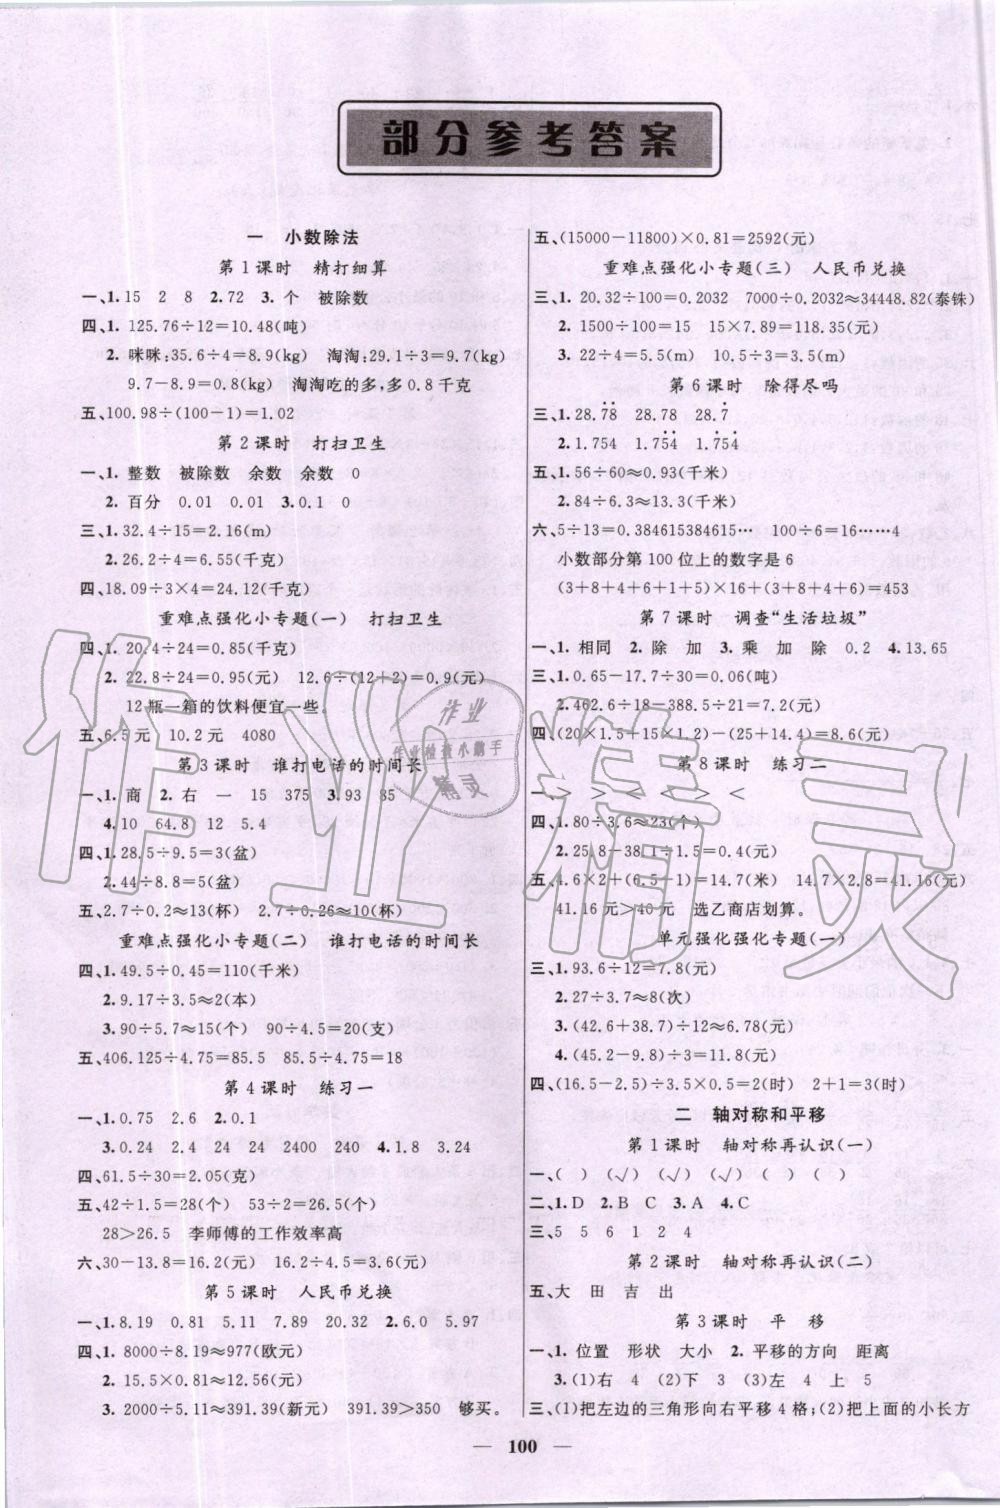 部分参考答案
一 小数除法
第1课时 精打细算
一、1.15 2 8 2.72 3.个 被除数
四、1. 125.76÷12=10.48(吨)
2. 咪咪:35.6÷4=8.9(kg) 淘淘:29.1÷3=9.7(kg)
9.7-8.9=0.8(kg) 淘淘吃的多,多0.8千克
五、100.98÷(100-1)=1.02
第2课时 打扫卫生
一、1. 整数 被除数 余数 余数 0
2. 百分 0.01 0.01 3.0.1 0
三、1.32.4÷15=2.16(m)
2.26.2÷4=6.55(千克)
四、18.09÷3×4=24.12(千克)
重难点强化小专题(一) 打扫卫生
四、1. 20.4÷24=0.85(千克)
2. 22.8÷24=0.95(元) 12.6÷(12+2)=0.9(元)
12瓶一箱的饮料便宜一些。
五、6.5元 10.2元 4080
第3课时 谁打电话的时间长
一、1.商 2.右 一 15 375 3.93 85
4.10 64.8 12 5.4
四、1.28.5÷9.5=3(盆)
2.44÷8.8=5(盆)
五、2.7÷0.2≈13(杯) 2.7÷0.26≈10(杯)
重难点强化小专题(二) 谁打电话的时间长
四、1.49.5÷0.45=110(千米)
2.9.17÷3.5≈2(本)
3.90÷5.7≈15(个) 90÷4.5=20(支)
五、406.125÷4.75=85.5 85.5÷4.75=18
第4课时 练习一
一、1.0.75 2.6 2.0.1
3.0.24 2.4 24 24 2400 240 4.1.8 3.24
四、61.5÷30=2.05(克)
五、42÷1.5=28(个) 53÷2=26.5(个)
28>26.5 李师傅的工作效率高
六、30-13.8=16.2(元) 16.2÷4.5=3.6(元)
第5课时 人民币兑换
一、1.8.19 0.81 5.11 7.89 20.32 2.6.0 5.97
四、1. 8000÷8.19≈977(欧元)
2. 15.5×0.81≈12.56(元)
3. 2000÷5.11≈391.39(新元) 391.39>350 够买。
五、(15000-11800)×0.81=2592(元)
重难点强化小专题(三) 人民币兑换
三、1. 20.32÷100=0.2032 7000÷0.2032≈34448.82(泰铢)
2. 1500÷100=15 15×7.89=118.35(元)
3. 22÷4=5.5(m) 10.5÷3=3.5(m)
第6课时 除得尽吗
三、1.28.7̇8̇ 28.78 28.7̇
2.1.754 1.75̇4̇ 1.7̇54̇
五、1.56÷60≈0.93(千米)
2.84÷6.3≈13.3(千米)
六、5÷13=0.384615384615… 100÷6=16……4
小数部分第100位上的数字是6
(3+8+4+6+1+5)×16+(3+8+4+6)=453
第7课时 调查“生活垃圾”
一、1. 相同 2.除 加 3.乘 加 除 0.2 4.13.65
三、1.0.65-17.7÷30=0.06(吨)
2.462.6÷18-388.5÷21=7.2(元)
四、(20×1.5+15×1.2)-(25+14.4)=8.6(元)
第8课时 练习二
一、> > < > > <
四、1.80÷3.6≈23(个)
2.25.8-38.1÷1.5=0.4(元)
五、4.6×2+(6.5-1)=14.7(米) 14.7×2.8=41.16(元)
41.16元>40元 选乙商店划算。
单元强化强化专题(一)
三、1.93.6÷12=7.8(元)
2.27÷3.7≈8(次)
3.(42.6+38.7)÷12≈6.78(元)
4.(45.2-9.8)÷3=11.8(元)
四、(16.5-2.5)÷3.5×0.5=2(时) 2+1=3(时)
二 轴对称和平移
第1课时 轴对称再认识(一)
一、( ) (√) (√) (√) ( ) ( )
二、1.D 2.B C 3.A 4.C
三、5 5 6 1 2 4
第2课时 轴对称再认识(二)
五、大 田 吉 出
第3课时 平 移
一、1. 位置 形状 大小 2.平移的方向 距离
3.(1)右 4 (2)下 3 (3)左 4 上 5
三、(1)把左边的三角形向右平移4格;(2)把上面的小长方
100
作业精灵
作业
作业检查小帮手
精灵